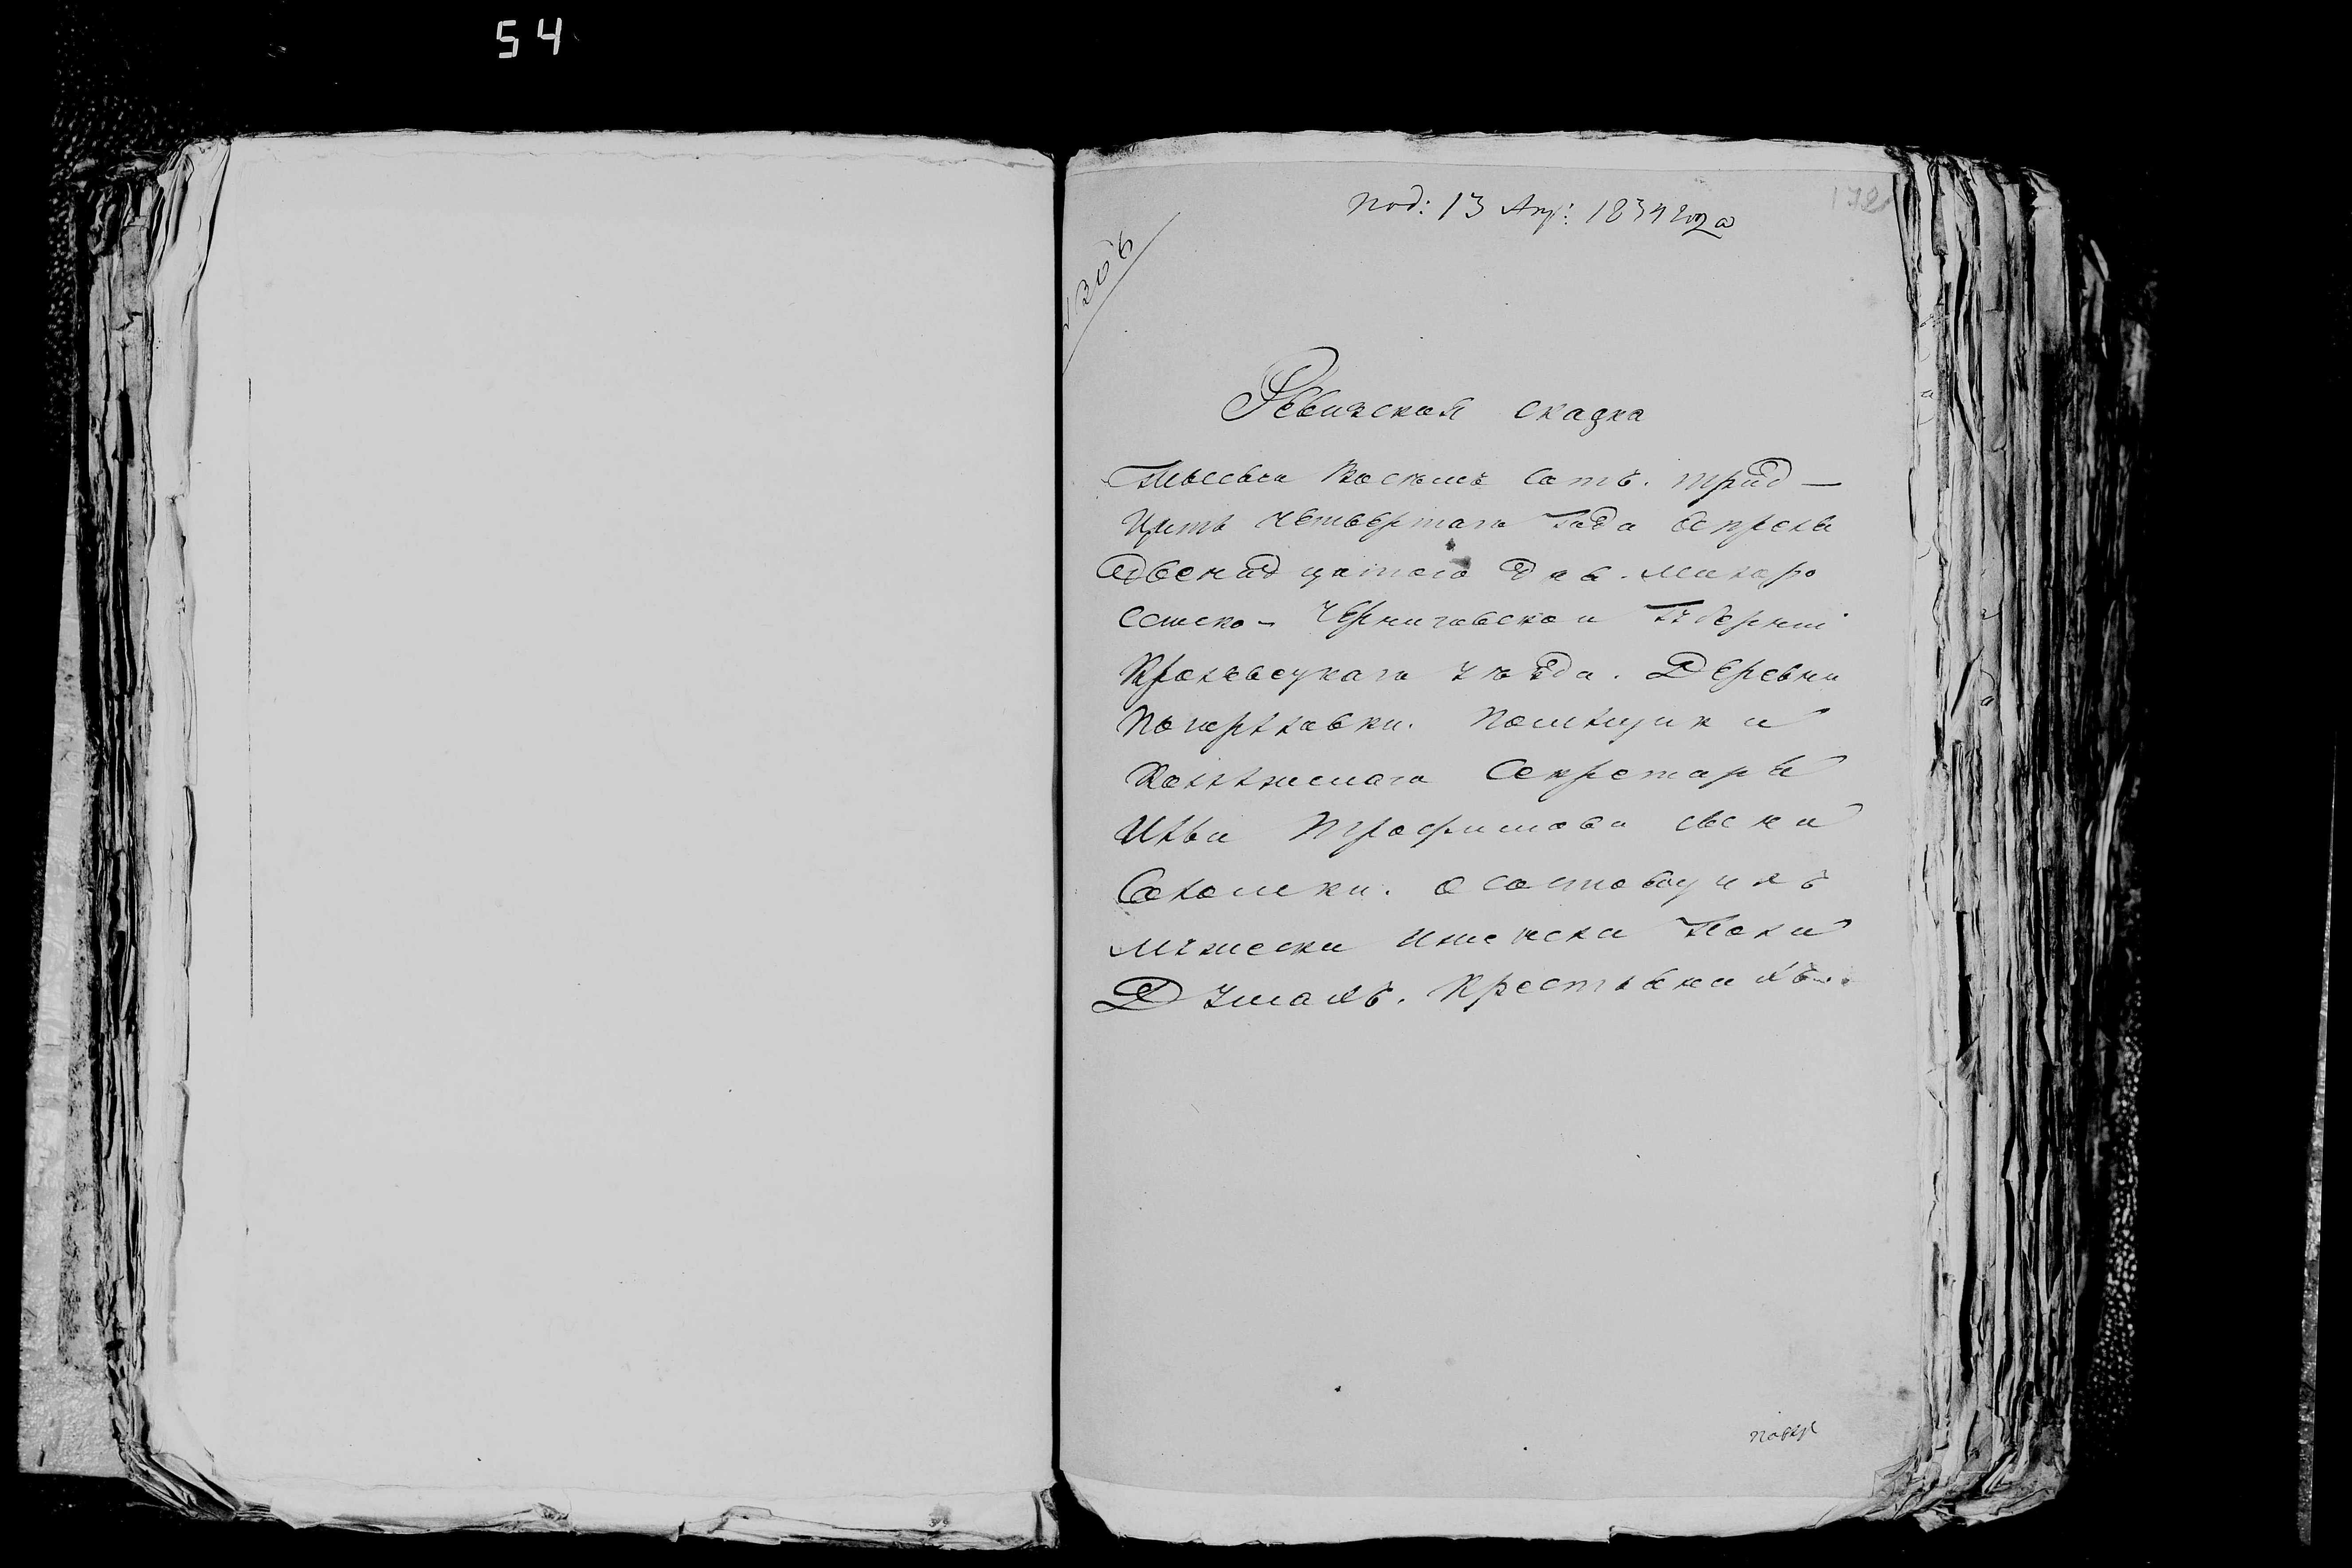 54
под: 13 Апр: 1834 года
172
1306
Ревизская сказка
Тысеча Восемъ сотъ. трид—
цать четвертага Года апреля
двенадцатого дня. малоро
сейско- Черниговской Губернии
Кролевецкаго уезда. Деревни
Погореловки. Помещика
Колежскаго Секретаря
Ильи Трофимова сына
. о состоящихъ
мужеска и женска пола
Душахъ. крестьянахъ..
повер